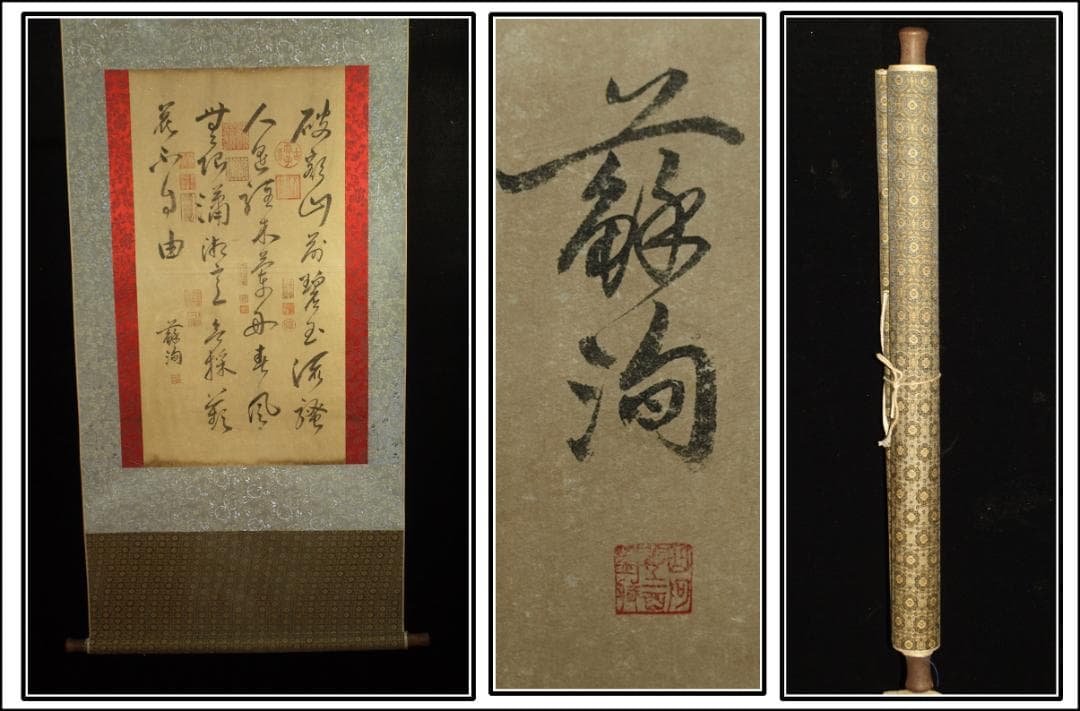 破額山前碧玉流騷
人遙駐木蘭舟春風
無限瀟湘意欲採蘋
花不自由
蘇洵
蘇洵